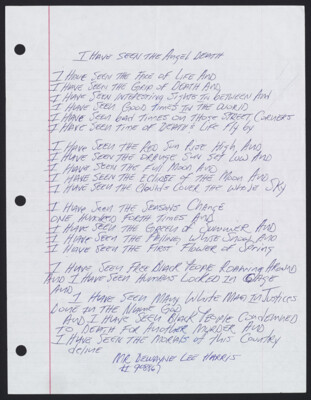 I Have Seen The Angel Death
I Have Seen The Face of Life And
I Have Seen The Grip of Death And,
I Have Seen Interesting Sights In Between And
I Have Seen Good Times In the World
I Have Seen Bad Times on Those Street Corners
I Have Seen Time of Death & Life Fly by
I Have Seen The Red Sun Rise High, And,
I Have Seen The Orange Sun Set Low And
I Have Seen The Full Moon And
I Have Seen The Eclipse of the Moon And
I Have Seen The Clouds Cover The Whole Sky
I Have Seen The Seasons Change
One Hundred Forth Times And
I Have Seen The Green of Summer And
I Have Seen The Falling White Snow, And
I Have Seen The First Flower of Spring
I Have Seen Free Black People Roaming Around
And I Have Seen Humans Locked In Cage
And
I Have Seen Many White Man In Justices
Done in The Name God
And, I Have Seen Black People Condemned
To Death For Another Murder And
I Have Seen The Morals of This Country
decline
Mr. Dewayne Lee Harris